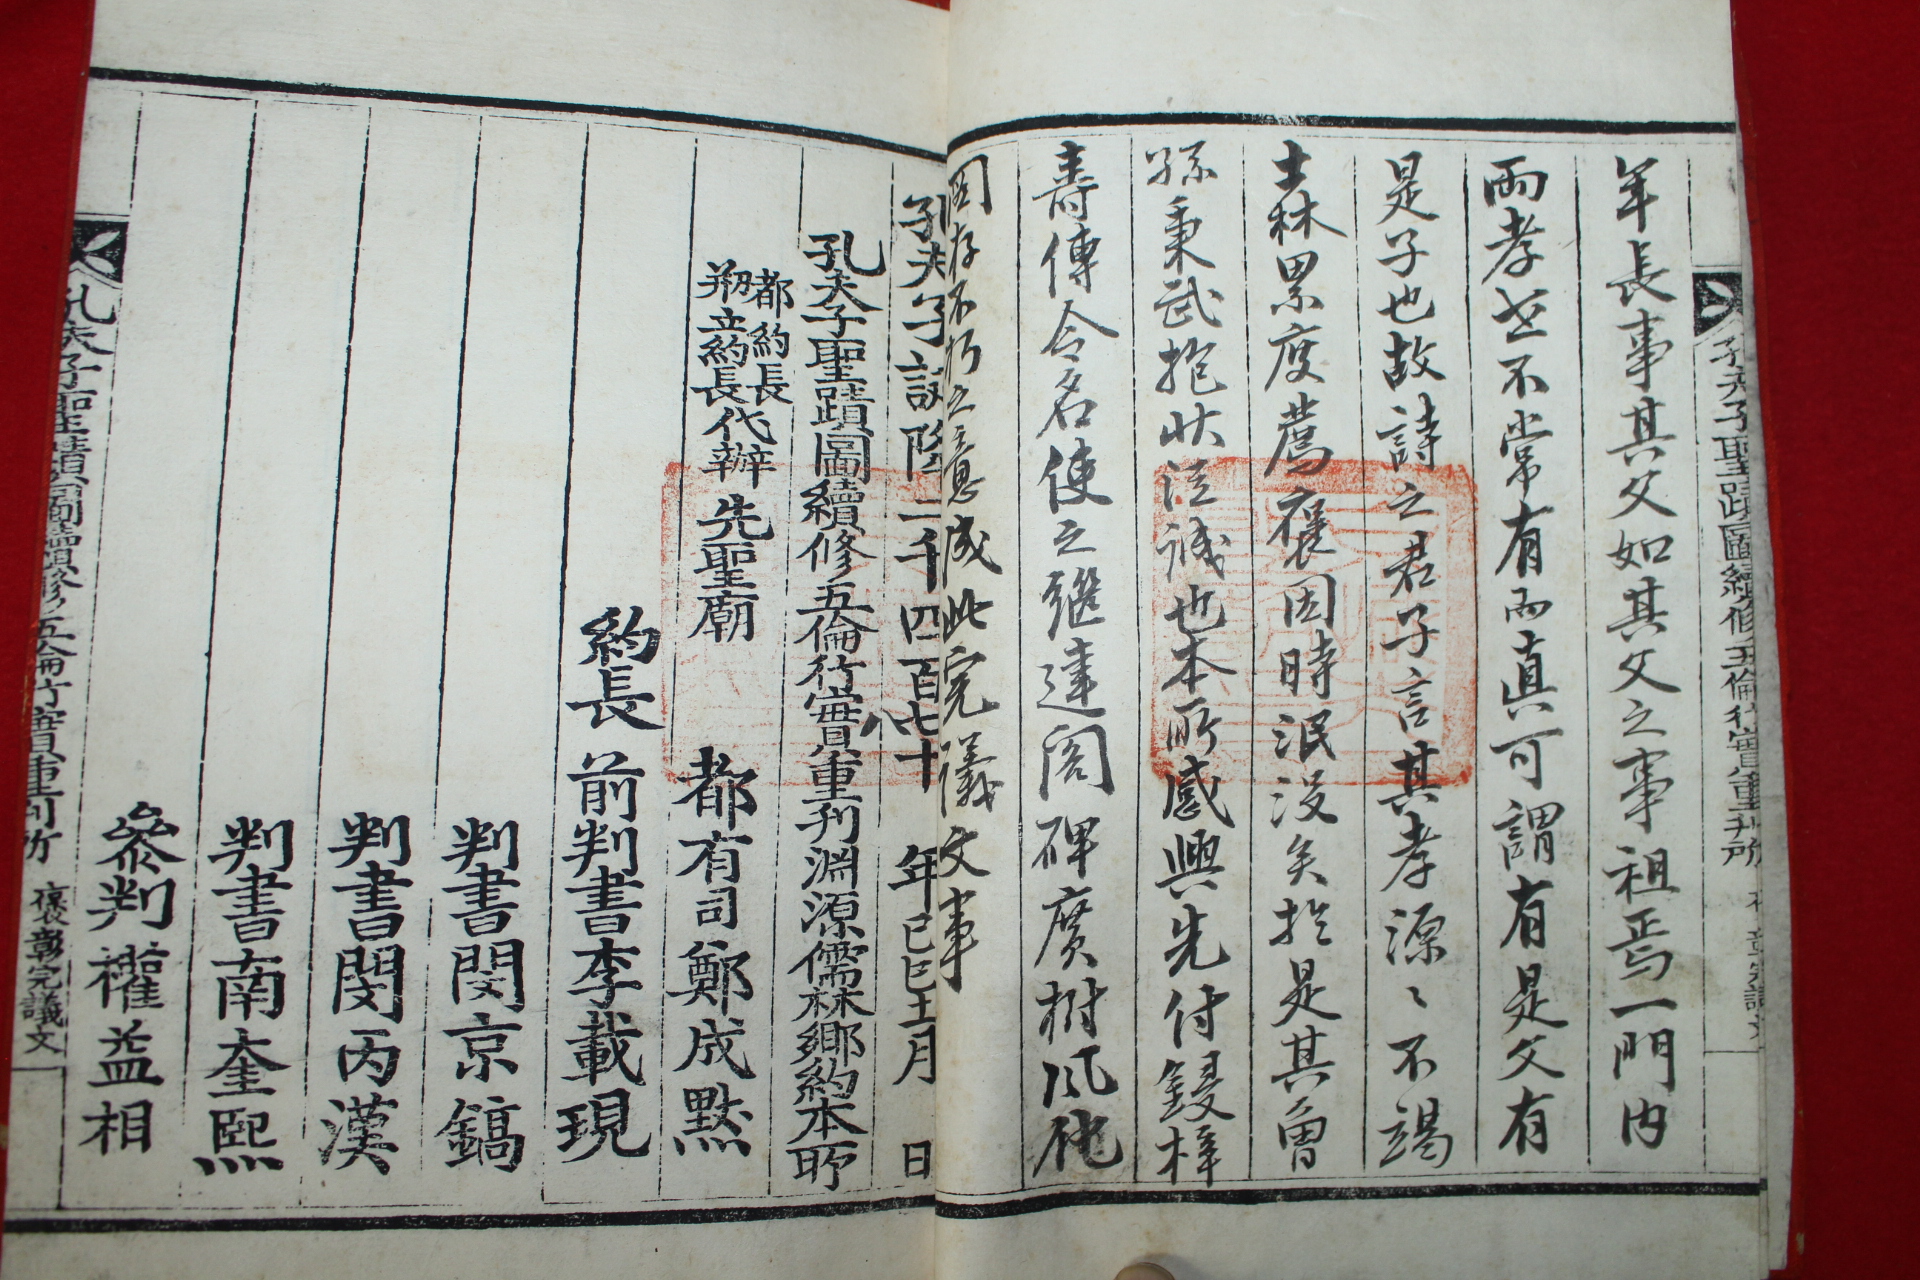 年長事其父如其父之事祖焉一門內
兩孝世不常有而眞可謂有是父有
是子也故詩之君子言其孝源〻不竭
士林累度薦褒因時泯沒矣於是其曾
孫秉武抱狀泣誠也本所感興先付鋟梓
壽傳令名使之繼達閤碑廣樹風化
因存不朽之意成此完議文事
孔夫子誕降二千四百七十八年己巳十二月 日
孔夫子聖蹟圖續修五倫行實重刊淵源儒林鄉約本所
都約長
刱立約長代辦 先聖廟 都有司鄭成默
約長 前判書李載現
判書閔京鎬
判書閔丙漢
判書南奎熙
參判權益相
孔夫子聖蹟圖續修五倫行實重刊所 褒彰完議文